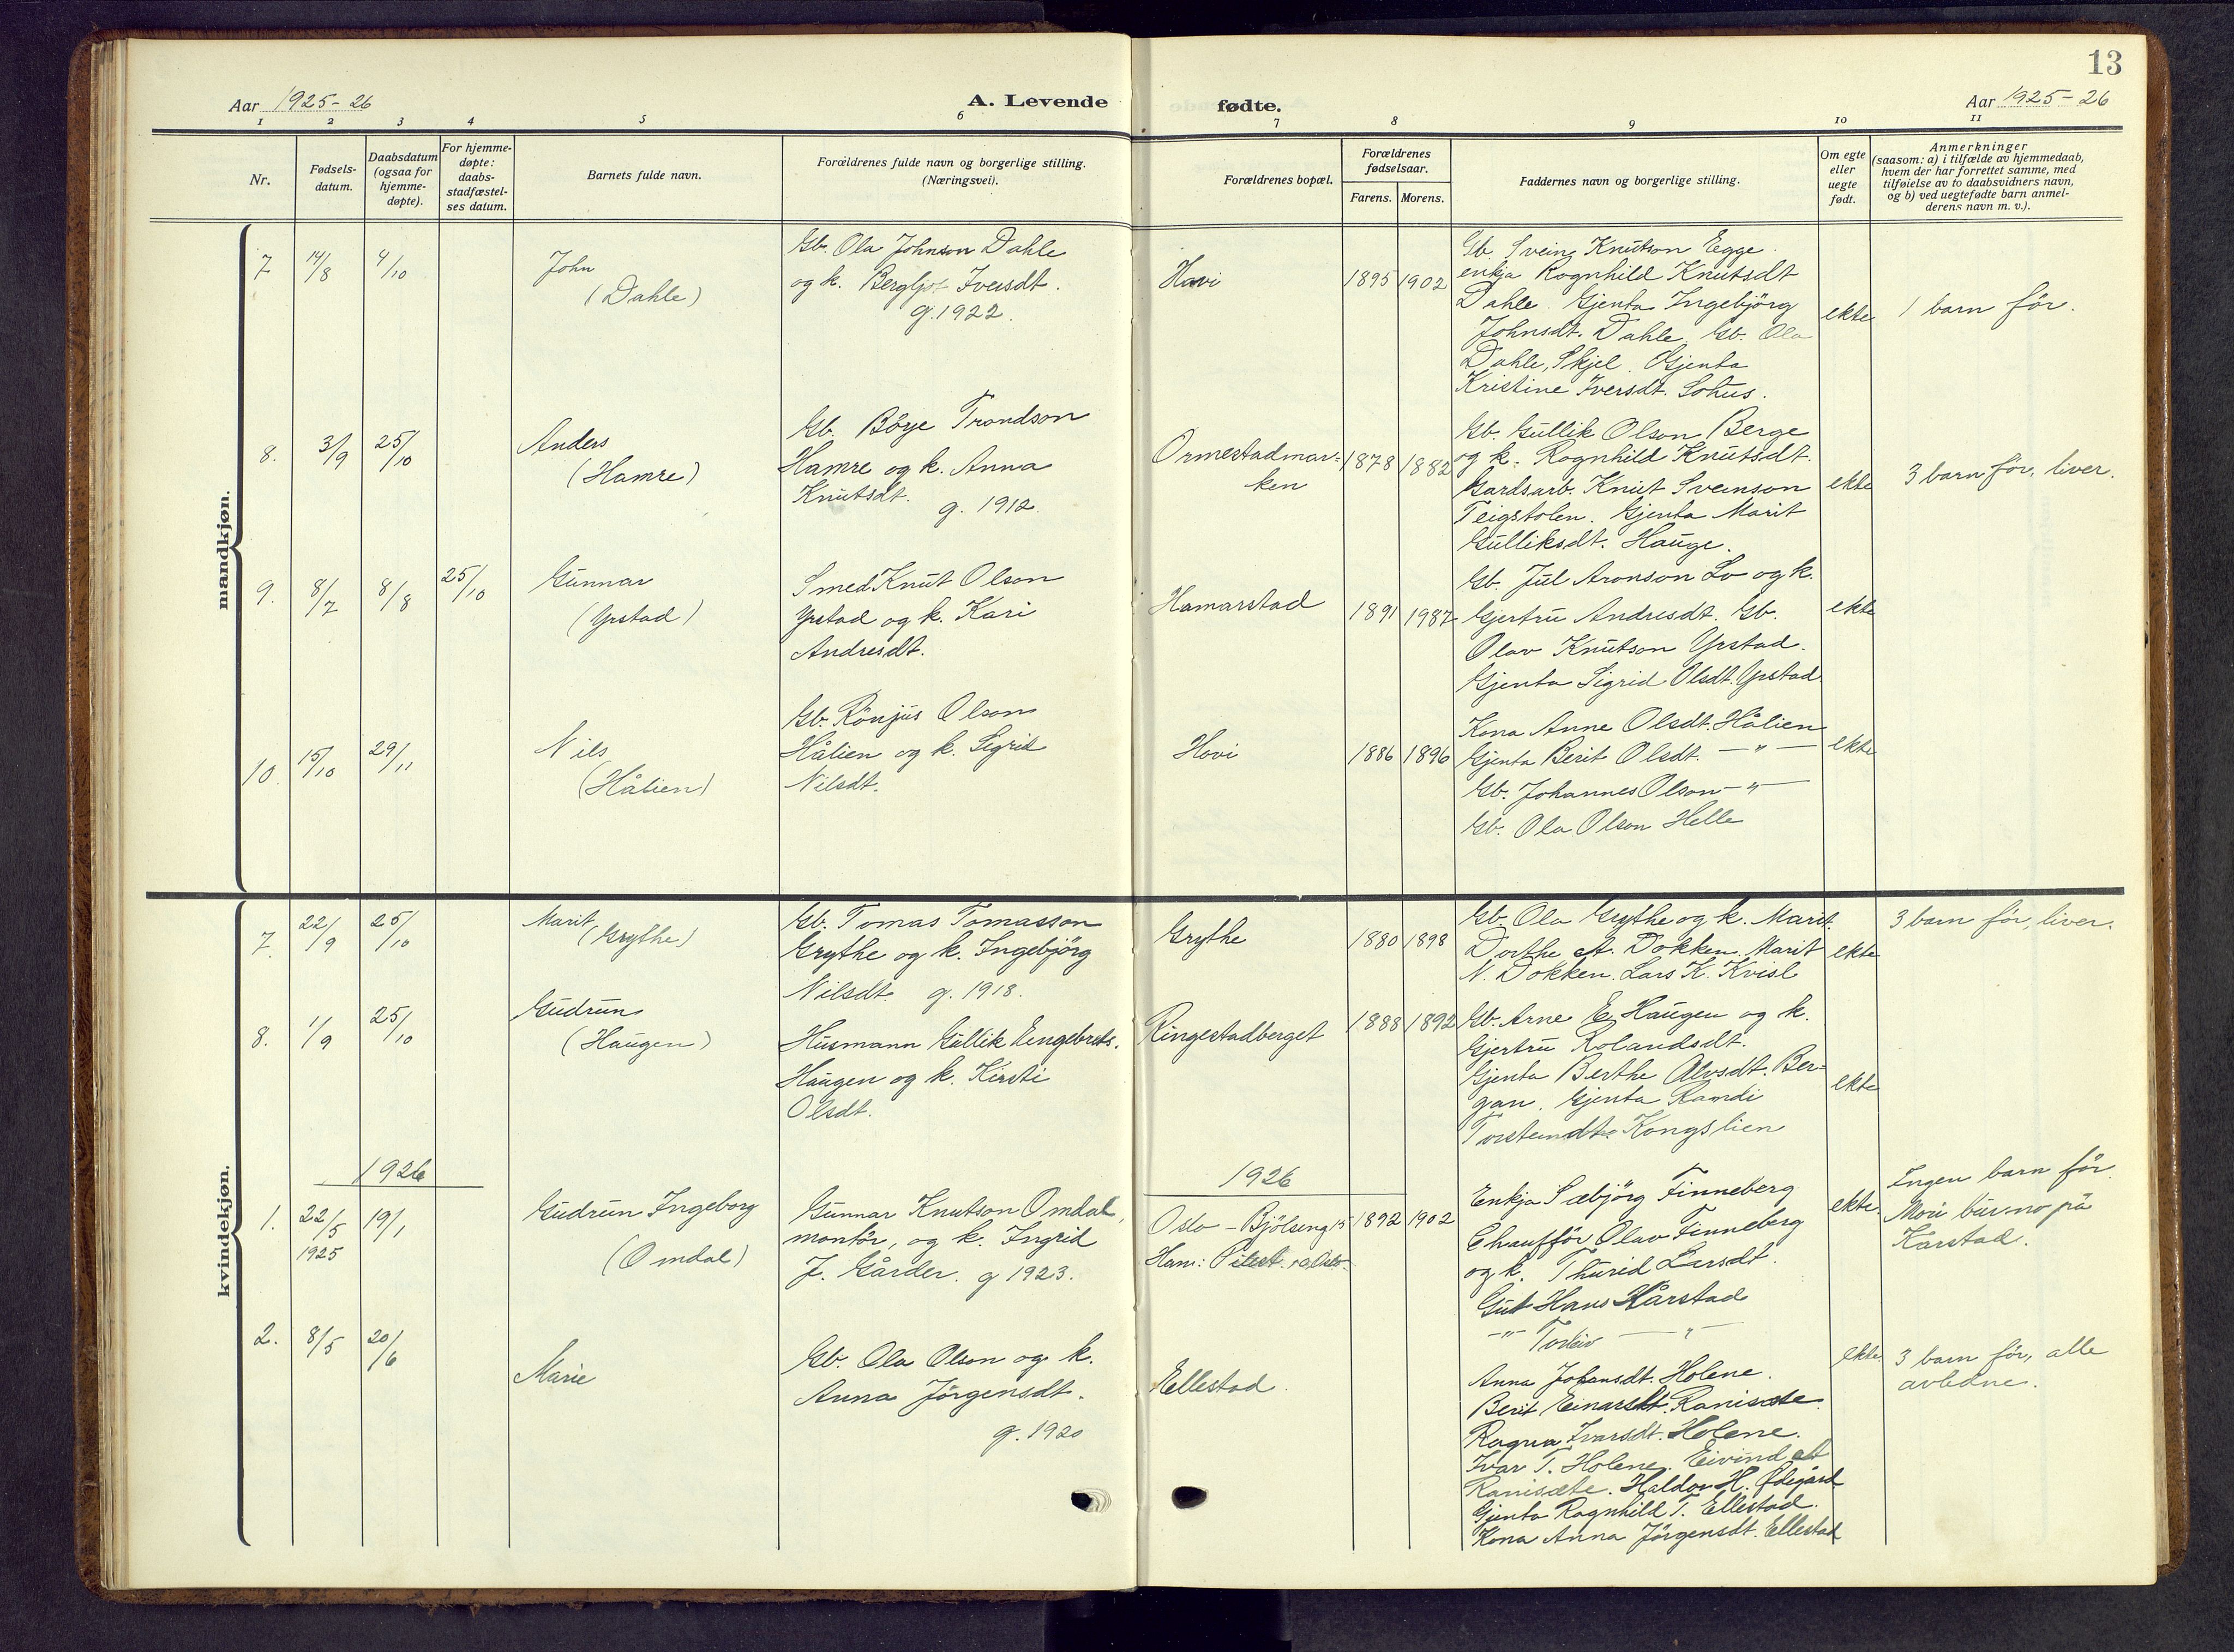 13
Aar 1925-26
A. Levende fødte.
Aar 1925-26
1 2 3 4 5 6 7 8 9 10 11
Nr.
Fødsels-
datum.
Daabsdatum
(ogsaa for
hjemme-
døpte).
For hjemme-
døpte:
daabs-
stadfæstel-
ses datum.
Barnets fulde navn.
Forældrenes fulde navn og borgerlige stilling.
(Næringsvei).
Forældrenes bopæl.
Forældrenes
fødselsaar.
Farens. Morens.
Faddernes navn og borgerlige stilling.
Om egte
eller
uegte
født.
Anmerkninger
(saasom: a) i tilfælde av hjemmedaab,
hvem der har forrettet samme, med
tilføielse av to daabsvidners navn,
og b) ved uegtefødte barn anmel-
derens navn m. v.).
mandkjøn.
7 14/8 4/10
John
(Dahle)
Gb. Ola Johnson Dahle
og k. Bergljot Iversdt.
g. 1922.
Hovi
1895 1902
Gb. Svein Knutson Egge.
enkja Rognhild Knutsdt
Dahle. Gjenta Ingebjörg
Johnsdt. Dahle. Gb. Ola
Dahle, Skjel. Gjenta
Kristine Iversdt. Lohus.
ekte
1 barn för.
8. 3/9 25/10
Anders
(Hamre)
Gb. Böye Trondson
Hamre og k. Anna
Knutsdt. g. 1912.
Ormestadmar-
ken
1878 1882
Gb. Gullik Olson Berge
og k. Rognhild Knutsdt.
Gardsarb. Knut Sveinson
Teigstolen. Gjenta Marit
Gulliksdt. Hauge.
ekte
3 barn för, liver.
9. 8/7 8/8 25/10
Gunnar
(Yrstad)
Smed Knut Olson
Yrstad og k. Kari
Andresdt.
Hamarstad
1891 1987
Gb. Jul Aronson Lo og k.
Gjertru Andresdt. Gb.
Olav Knutson Yrstad.
Gjenta Sigrid Olsdt. Yrstad
ekte
10. 15/10 29/11
Nils
(Hålien)
Gb. Rönjus Olson
Hålien og k. Sigrid
Nilsdt.
Hovi
1886 1896
Kona Anne Olsdt. Hålien
Gjenta Berit Olsdt. — " —
Gb. Johannes Olson — " —
Gb. Ola Olson Helle
ekte
kvindekjøn.
7. 22/9 25/10
Marit
(Grythe)
Gb. Tomas Tomasson
Grythe og k. Ingebjörg
Nilsdt. g. 1918.
Grythe
1880 1898
Gb. Ola Grythe og k. Marit.
Dorthe A. Dokken. Marit
N. Dokken. Lars K. Kvisl
ekte
3 barn för, liver.
8. 1/9 25/10
Gudrun
(Haugen)
Husmann Gullik Engebrets.
Haugen og k. Kirsti
Olsdt.
Ringestadberget
1888 1892
Gb. Arne E. Haugen og k.
Gjertru Rolandsdt.
Gjenta Berthe Alvsdt. Ber-
gan. Gjenta Randi
Torsteindt. Kongslien
ekte
1926
1926
1. 22/5 1925 19/1
Gudrun Ingeborg
(Omdal)
Gunnar Knutson Omdal,
montör, og k. Ingrid
J. Gårder. g 1923.
Oslo - Bjölseng. 15
Ham: Pilest. Oslo.
1892 1902
Enkja Sæbjörg Finneberg
Chaufför Olav Finneberg
og k. Thurid Larsdt.
Gut Hans Kårstad
— " — Torleiv — " —
ekte.
Ingen barn för.
Mori bur no på
Kårstad.
2. 8/5 20/6
Marie
Gb. Ola Olson og k.
Anna Jörgensdt.
g. 1920
Ellestad.
Anna Johansdt. Holene.
Berit Einarsdt. Ranisæte.
Ragna Ivarsdt. Holene.
Ivar T. Holene. Eivind
Ranisæte. Haldor H. Ødegård
Gjenta Ragnhild T. Ellestad.
Kona Anna Jörgensdt. Ellestad
ekte.
3 barn för, alle
avledne.